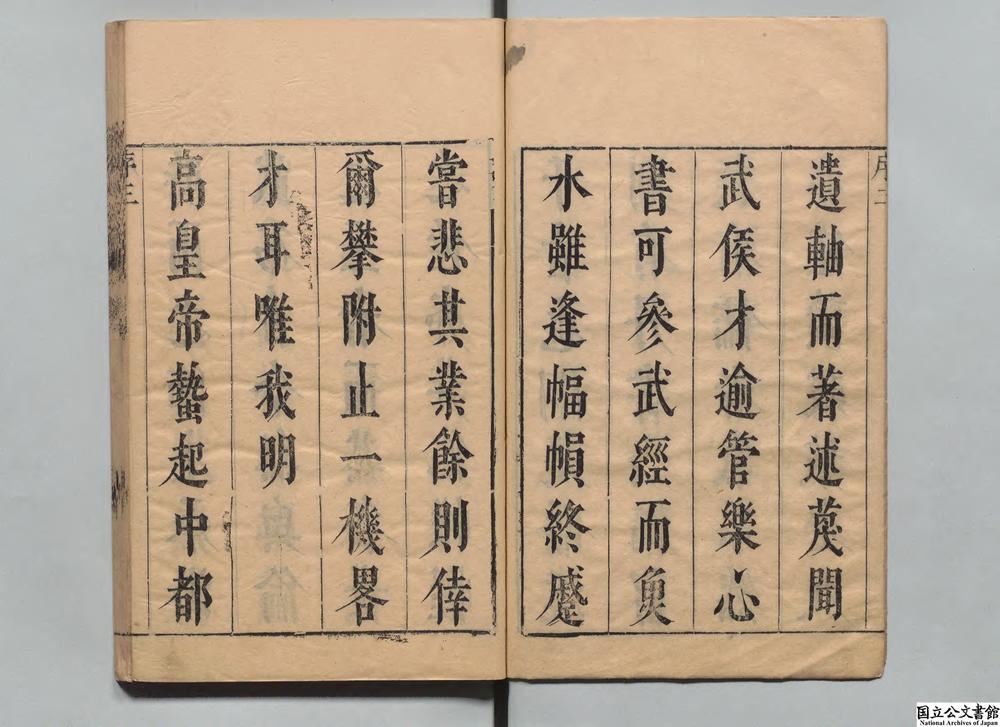 遺軸而著述蔑聞
武侯才逾管樂心
書可參武經而魚
水雖逢幅幀終蹙
嘗悲其業餘則倖
爾攀附止一機畧
才耳唯我明
高皇帝蟄起中都
序三
国立公文書館
National Archives of Japan